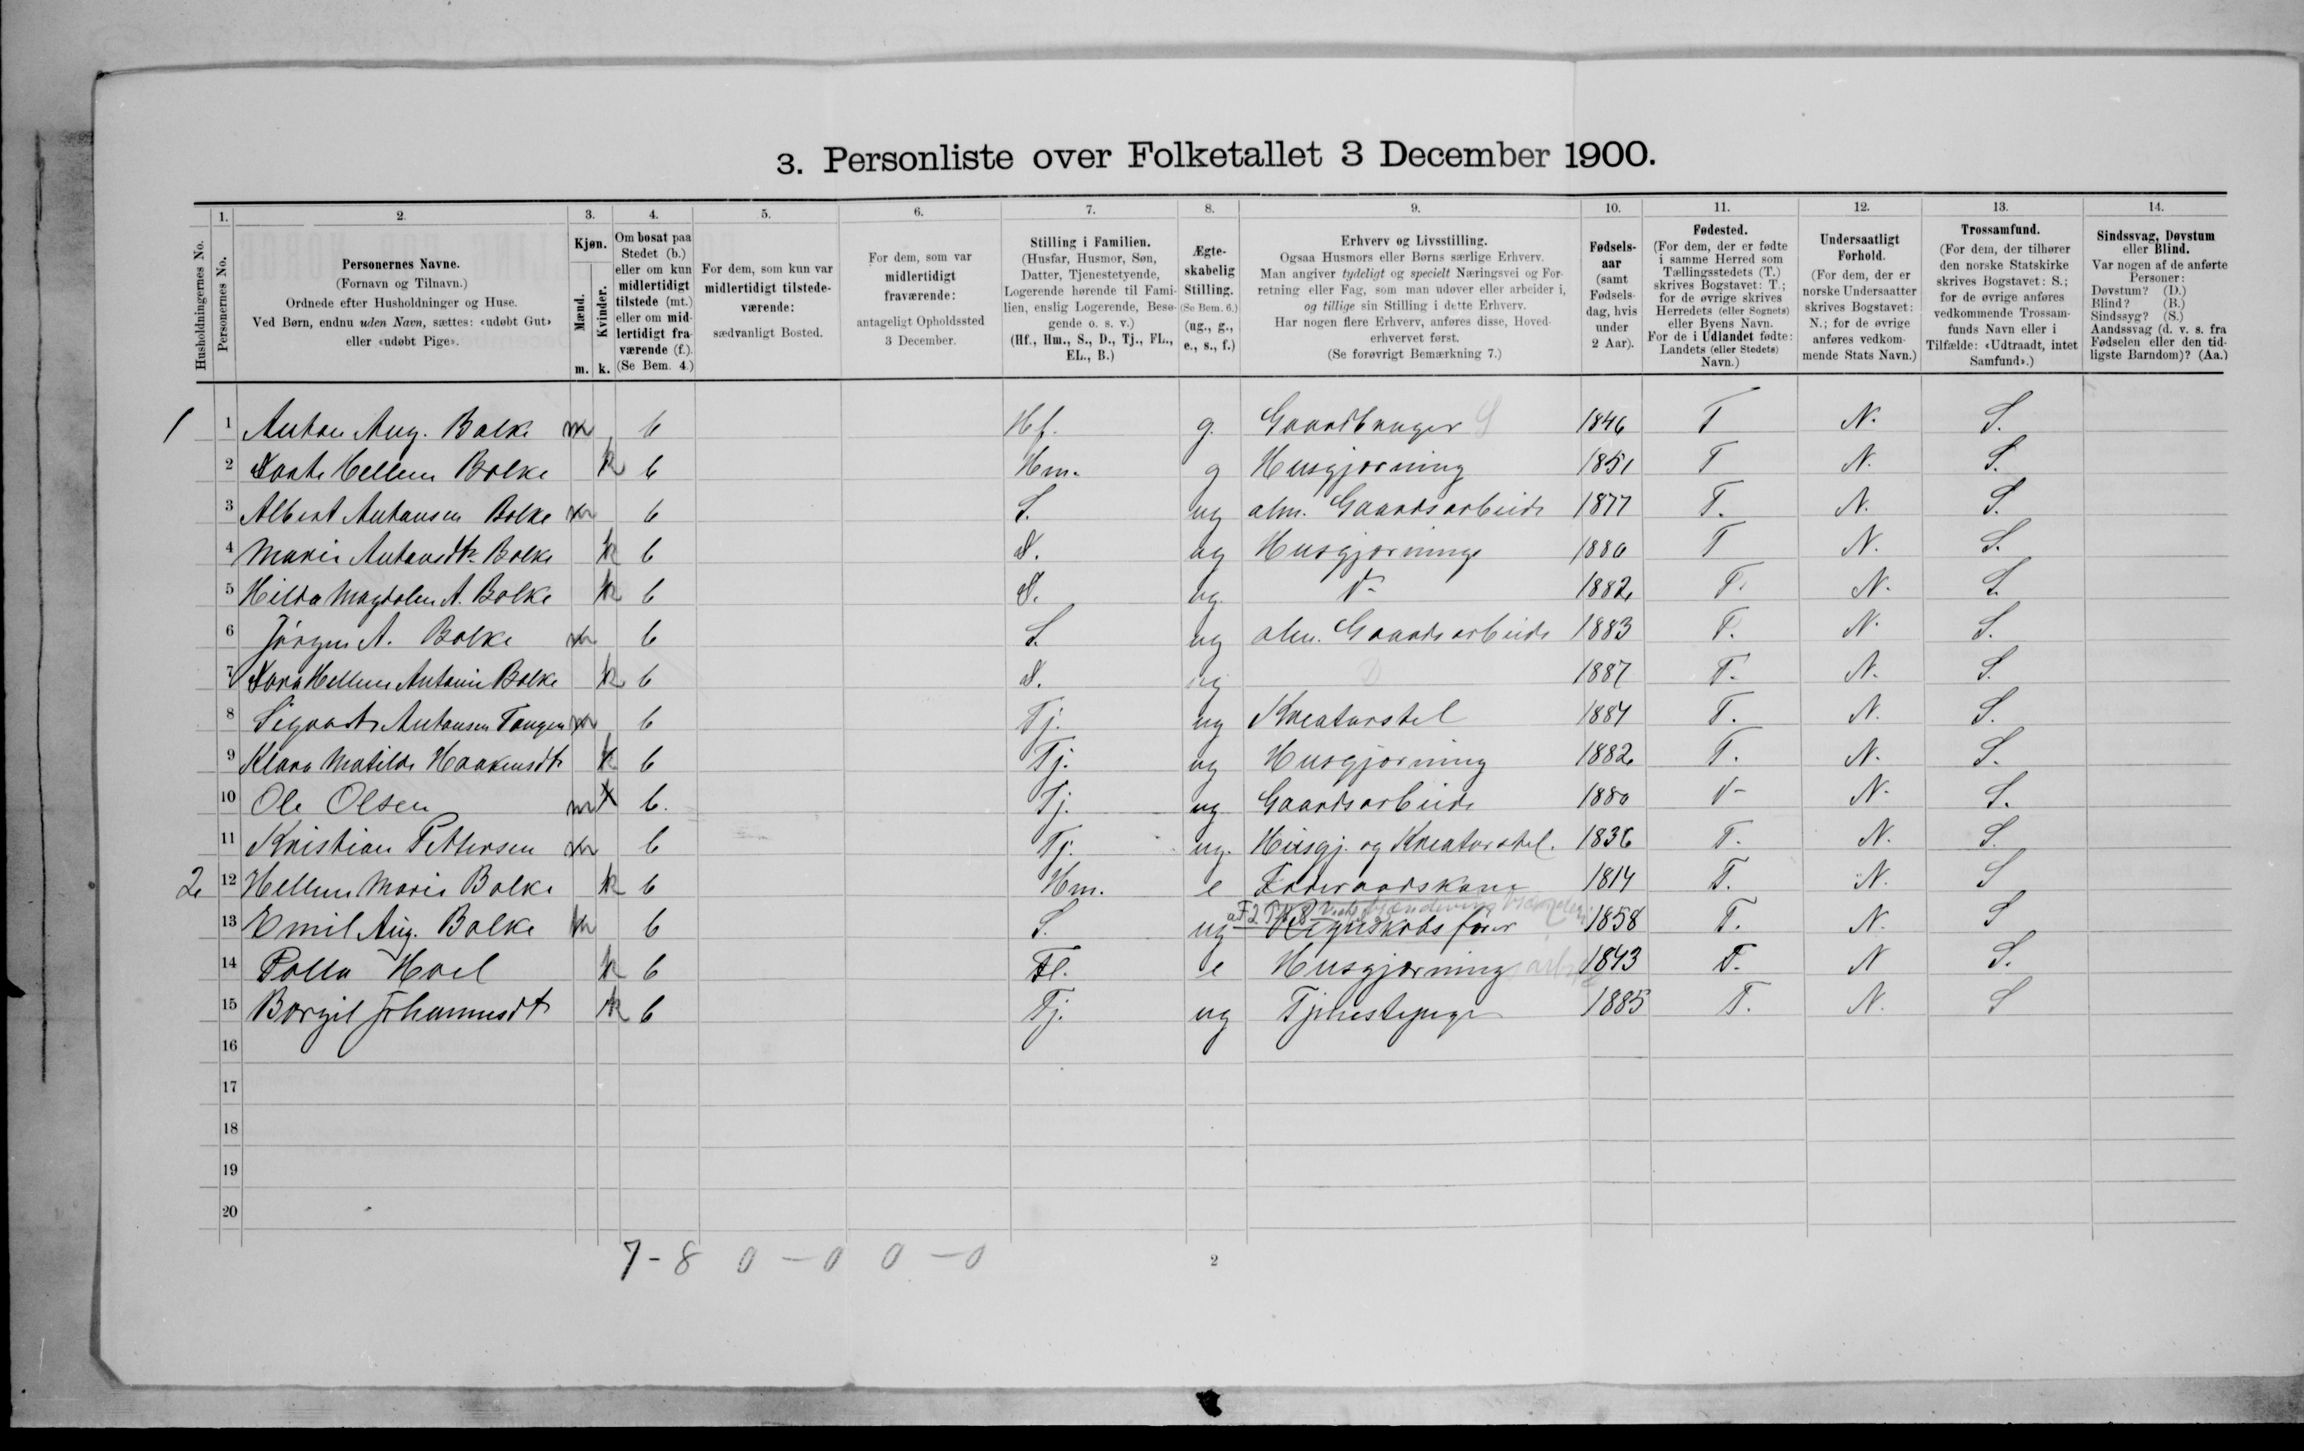 3. Personliste over Folketallet 3 December 1900.
1. 2. 3. 4. 5. 6. 7. 8. 9. 10. 11. 12. 13. 14.
Husholdningernes No.
Personernes No.
Personernes Navne.
(Fornavn og Tilnavn.)
Ordnede efter Husholdninger og Huse.
Ved Børn, endnu uden Navn, sættes: «udøbt Gut»
eller «udøbt Pige».
Kjøn.
Mænd.
Kvinder.
m. k.
Om bosat paa
Stedet (b.)
eller om kun
midlertidigt
tilstede (mt.)
eller om mid-
lertidigt fra-
værende (f.).
(Se Bem. 4.)
For dem, som kun var
midlertidigt tilstede-
værende:
sædvanligt Bosted.
For dem, som var
midlertidigt
fraværende:
antageligt Opholdssted
3 December.
Stilling i Familien.
(Husfar, Husmor, Søn,
Datter, Tjenestetyende,
Logerende hørende til Fami-
lien, enslig Logerende, Besø-
gende o. s. v.)
(Hf., Hm., S., D., Tj., FL.,
EL., B.)
Ægte-
skabelig
Stilling.
(Se Bem. 6.)
(ug., g.,
e., s., f.)
Erhverv og Livsstilling.
Ogsaa Husmors eller Børns særlige Erhverv.
Man angiver tydeligt og specielt Næringsvei og For-
retning eller Fag, som man udøver eller arbeider i,
og tillige sin Stilling i dette Erhverv.
Har nogen flere Erhverv, anføres disse, Hoved-
erhvervet først.
(Se forøvrigt Bemærkning 7.)
Fødsels-
aar
(samt
Fødsels-
dag, hvis
under
2 Aar).
Fødested.
(For dem, der er fødte
i samme Herred som
Tællingsstedets (T.)
skrives Bogstavet: T.;
for de øvrige skrives
Herredets (eller Sognets)
eller Byens Navn.
For de i Udlandet fødte:
Landets (eller Stedets)
Navn.)
Undersaatligt
Forhold.
(For dem, der er
norske Undersaatter
skrives Bogstavet:
N.; for de øvrige
anføres vedkom-
mende Stats Navn.)
Trossamfund.
(For dem, der tilhører
den norske Statskirke
skrives Bogstavet: S.;
for de øvrige anføres
vedkommende Trossam-
funds Navn eller i
Tilfælde: «Udtraadt, intet
Samfund».)
Sindssvag, Døvstum
eller Blind.
Var nogen af de anførte
Personer:
Døvstum? (D.)
Blind? (B.)
Sindssyg? (S.)
Aandssvag (d. v. s. fra
Fødselen eller den tid-
ligste Barndom)? (Aa.)
1 1 Anton Aug. Bolke m b Hf. g. Gaardbruger S 1846 T N. S.
2 Hellene Bolke k b Hm. g Husgjerning 1851 T N. S.
3 Albert Antonsen Bolke m b S. ug alm. Gaardsarbeide 1877 T. N. S.
4 Marie Antonsdtr. Bolke k b D. ug Husgjerning 1880 T N. S.
5 Hilda Magdalen A. Bolke k b D. ug. D- 1882 T. N. S.
6 Jørgen A. Bolke m b S. ug alm. Gaardsarbeide 1883 T. N. S.
7 Hellene Antonie Bolke k b D. ug D 1887 T. N. S.
8 Sigvart Antonsen Tangen m b Tj. ug Kreaturstel 1884 T. N. S.
9 Klara Matilde Haakensdtr k b Tj. ug Husgjerning 1882 T. N. S.
10 Ole Olsen m b. Tj. ug Gaardsarbeide 1880 N. S.
11 Kristian Pettersen m b Tj. ug. Husgj. og Kreaturstel. 1836 T. N. S.
2 12 Hellene Marie Bolke k b Hm. e Føderaadskone 1814 T. N. S
13 Emil Aug. Bolke m b S. ug Regnskabsfører 1858 T. N. S
14 Hoel k b Fl. e Husgjerning 1843 T. N S.
15 Borgil Johannesdtr k b Tj. ug Tjenestepige 1885 T. N. S
16
17
18
19
20
7 - 8 0 - 0 0 - 0
2